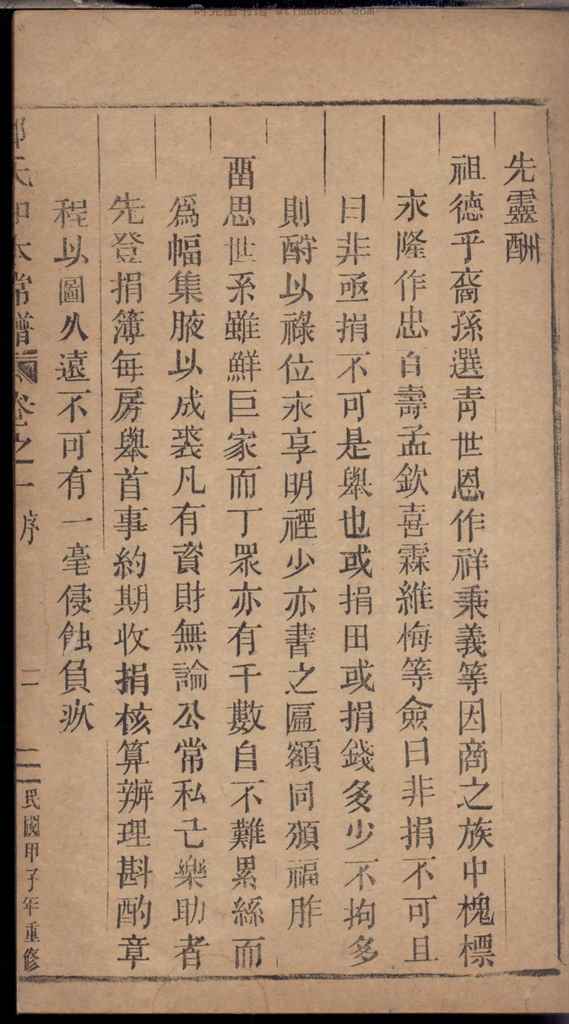 先靈酬
祖德乎裔孫選青世恩作祥秉義等因商之族中槐標
永隆作忠百壽孟欽喜霖維梅等僉曰非捐不可且
曰非亟捐不可是舉也或捐田或捐錢多少不拘多
則酧以祿位永享明禋少亦書之匾額同頒福胙
畱思世系雖鮮巨家而丁眾亦有千數自不難累絲而
爲幅集腋以成裘凡有資財無論公常私己樂助者
先登捐簿每房舉首事約期收捐核算辦理斟酌章
程以圖久遠不可有一毫侵蝕負欤
氏 常譜 卷之一 序 二 民國甲子年重修